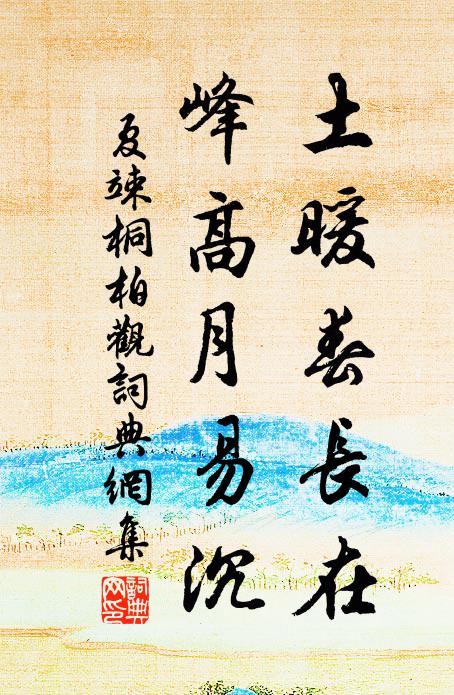 土暖春長在
峰高月易沉
夏竦桐柏觀詞典網集
詞典網印